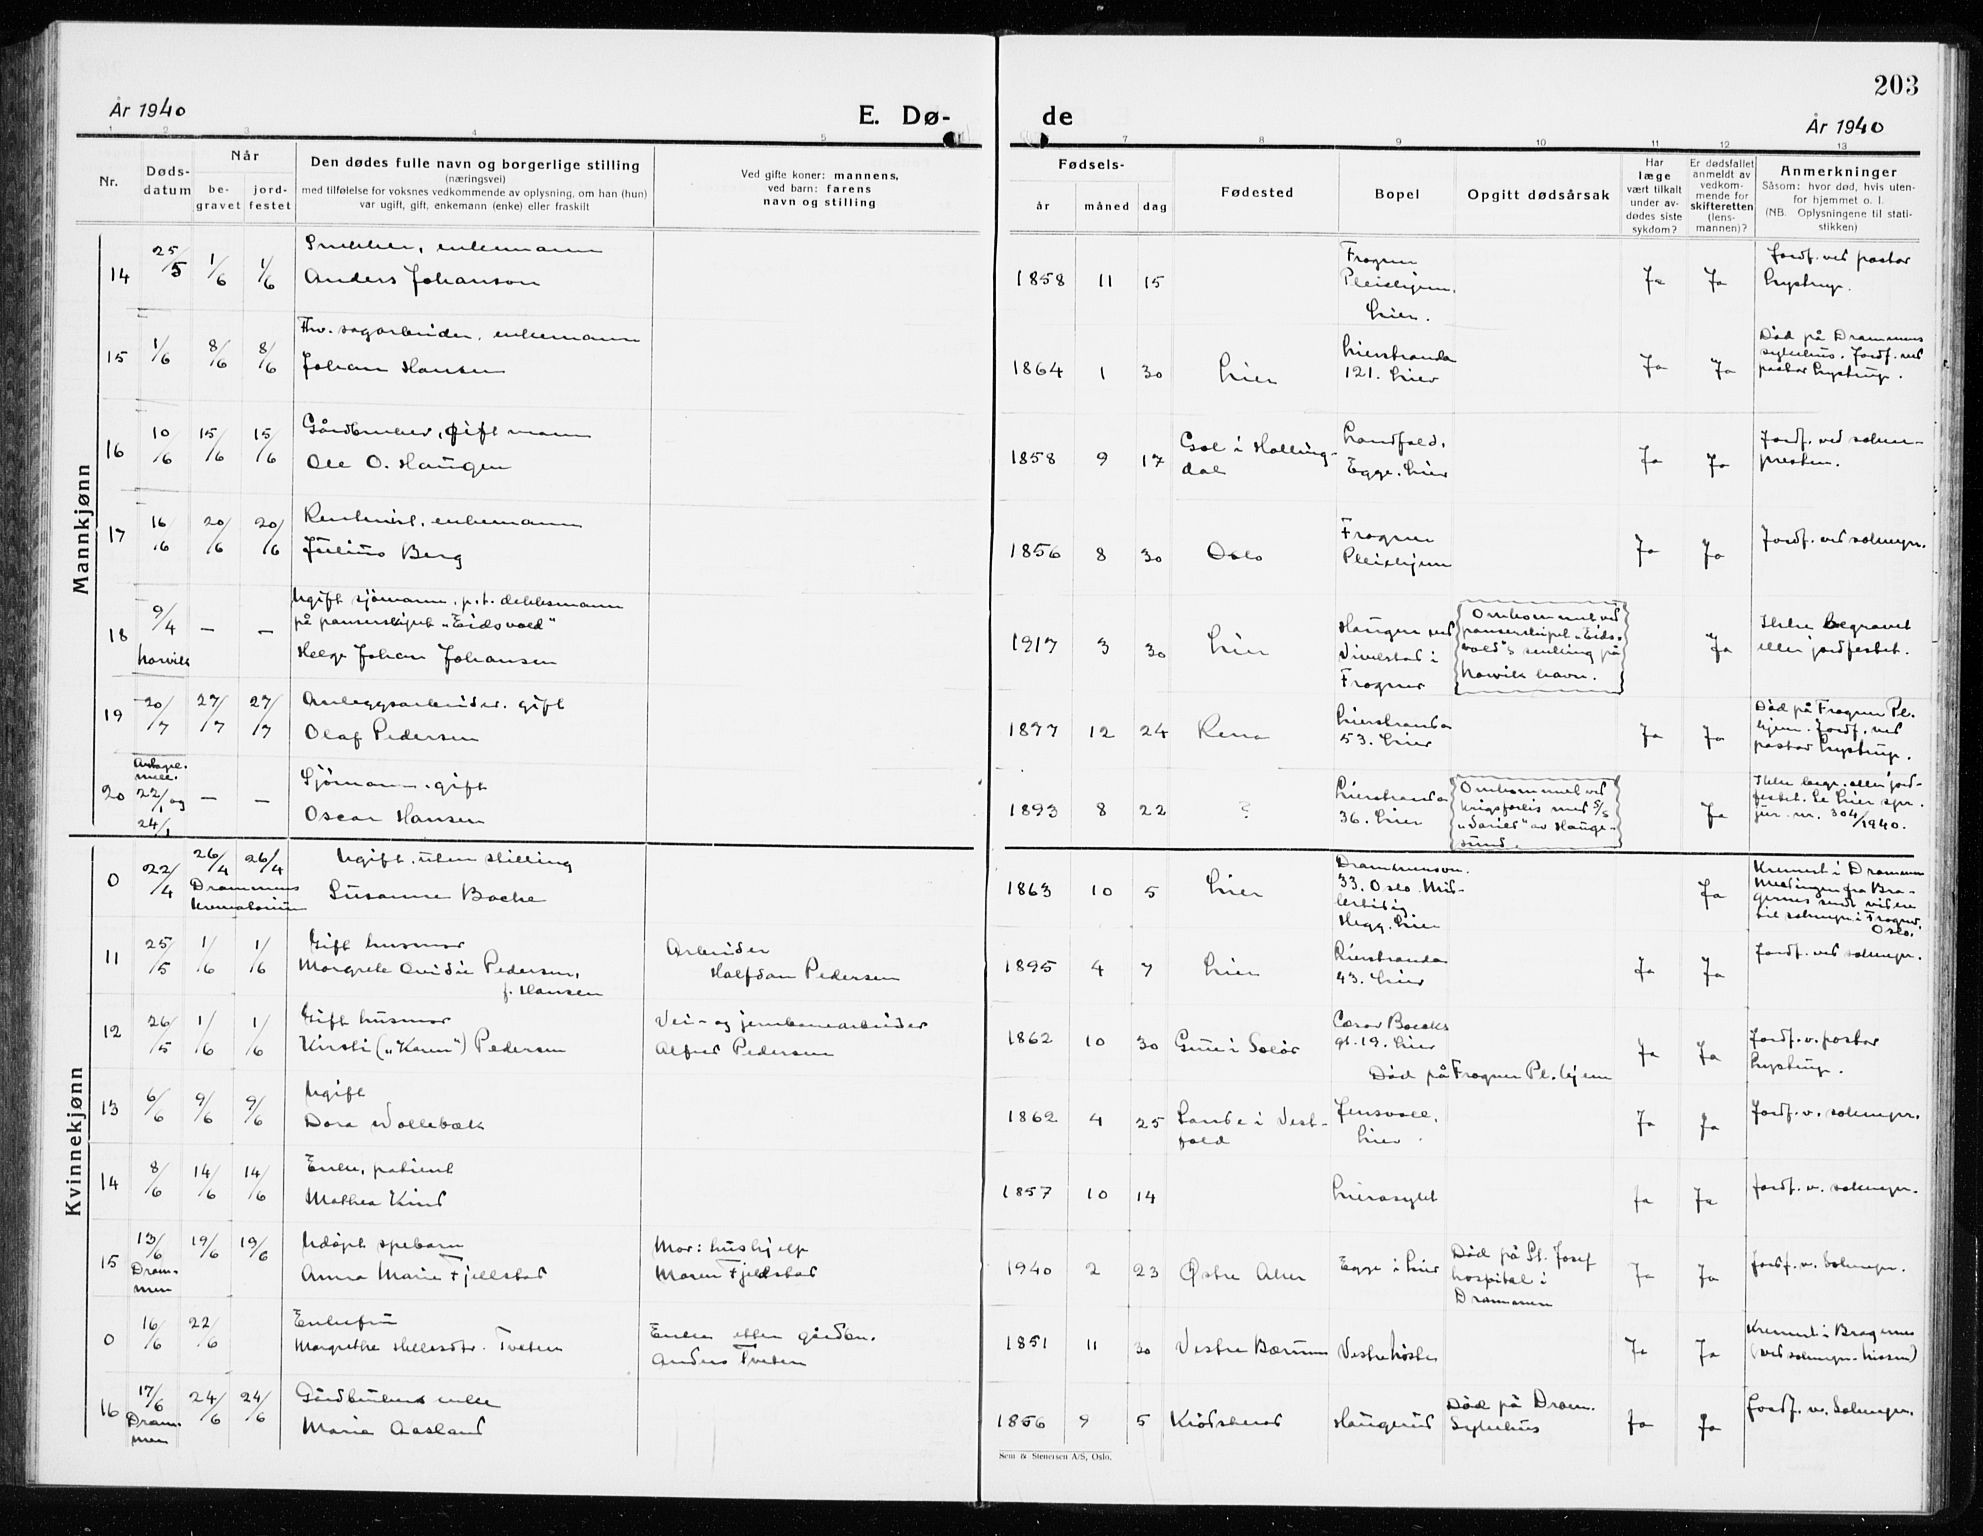 203
År 1940
E. Dø-
de
År 1940
1 2 3 4 5 7 8 9 10 11 12 13
Nr.
Døds-
datum
Når
be-
gravet
jord-
festet
Den dødes fulle navn og borgerlige stilling
(næringsvei)
med tilføielse for voksnes vedkommende av oplysning, om han (hun)
var ugift, gift, enkemann (enke) eller fraskilt
Ved gifte koner: mannens,
ved barn: farens
navn og stilling
Fødsels-
år
måned
dag
Fødested
Bopel
Opgitt dødsårsak
Har
læge
vært tilkalt
under av-
dødes siste
sykdom?
Er dødsfallet
anmeldt av
vedkom-
mende for
skifteretten
(lens-
mannen)?
Anmerkninger
Såsom: hvor død, hvis uten-
for hjemmet o. l.
(NB. Oplysningene til stati-
stikken)
Mannkjønn
14 25/5 1/6 1/6 Snekker, enkemann
Anders Johanson
1858 11 15
Frogner
Pleiehjem.
Lier.
Ja Ja
Jordf. ved pastor
Lystrup.
15 1/6 8/6 8/6 Fhv. sagarbeider, enkemann
Johan Hansen
1864 1 30 Lier
Lierstranda
121. Lier
Ja Ja
Død på Drammens
sykehus. Jordf. ved
pastor Lystrup.
16 10/6 15/6 15/6 Gårdbruker, gift mann
Ole O. Haugen
1858 9 17 Gol i Halling-
dal
Landfald,
Egge. Lier
Ja Ja
Jordf. ved sokne-
presten.
17 16/6 20/6 20/6 Rentenist, enkemann
Julius Berg
1856 8 30 Oslo
Frogner
Pleiehjem
Ja Ja
Jordf. ved soknepr.
18 9/4 Narvik – – Ugift sjömann, p.t. dekksmann
på panserskipet „Eidsvold"
Helge Johan Johansen
1917 3 30 Lier
Haugen ved
Vivelstad i
Frogner
Omkommet ved
panserskipet „Eids-
vold"s senking på
Narvik havn.
Ja
Ikke begravet
eller jordfestet.
19 20/7 27/7 27/7 Anleggsarbeider, gift
Olaf Pedersen
1877 12 24 Rena
Lierstranda
53. Lier
Ja Ja
Død på Frogner Pl.
hjem. Jordf. ved
pastor Lystrup.
20 Antagel.
mell.
22/1 og
24/1
– –
Sjömann, gift
Oscar Hansen
1893 8 22 ?
Lierstranda
36. Lier
Omkommet ved
krigsforlis med S/S
„Varild" av Hauge-
sund.
Ja
Ikke begr. eller jord-
festet. Se Lier spr.
jur. nr. 304/1940.
Kvinnekjønn
0 22/4 26/4 26/4
Drammens
krematorium
Ugift, uten stilling
Susanne Bache
1863 10 5 Lier
Drammensvn.
33. Oslo. Mid-
lertidig
Hegg. Lier
Ja
Kremert i Drammen
Meldingen fra Bra-
gernes sendt videre
til soknepr. i Frogner,
Oslo.
11 25/5 1/6 1/6 Gift husmor
Margrete Ovidie Pedersen,
f. Hansen
Arbeider
Halfdan Pedersen
1895 4 7 Lier
Lierstranda
43. Lier
Ja Ja
Jordf. ved soknepr.
12 26/5 1/6 1/6 Gift husmor
Kirsti („Karen") Pedersen
Vei- og jernbanearbeider
Alfred Pedersen
1862 10 30 Grue i Solör
Cæsar Boecks
gt. 19. Lier
Død på Frogner Pl. hjem
Ja Ja
Jordf. v. pastor
Lystrup.
13 6/6 9/6 9/6 Ugift
Dora Wollebæk
1862 4 25 Sande i Vest-
fold
Jensvoll.
Lier
Ja Ja
Jordf. v. soknepr.
14 8/6 14/6 14/6 Enke, patient
Mathea Kind
1857 10 14
Lierasylet
Ja Ja
Jordf. v. soknepr.
15 13/6 Dram-
men
19/6 19/6 Udøpt spebarn
Anna Marie Fjellstad
Mor: hushjelp
Maren Fjeldstad
1940 2 23 Østre Aker
Egge i Lier
Død på St. Josef
hospital i
Drammen
Ja Ja
Jordf. v. Soknepr.
0 16/6 22/6 Enkefru
Margrethe Hellesdtr. Tveten
Enke etter gårdbr.
Anders Tveten
1851 11 30 Vestre Bærum
Vestre höste
Ja Ja
Kremert i Bragernes
(ved soknepr. Nissen)
16 17/6 Dram-
men
24/6 24/6 Gårdbrukers enke
Maria Aasland
1856 9 5 Krödsherad
Haugerud
Død på Dram.
Sykehus
Ja Ja
Jordf. v. Soknepr.
Sem & Stenersen A/S, Oslo.